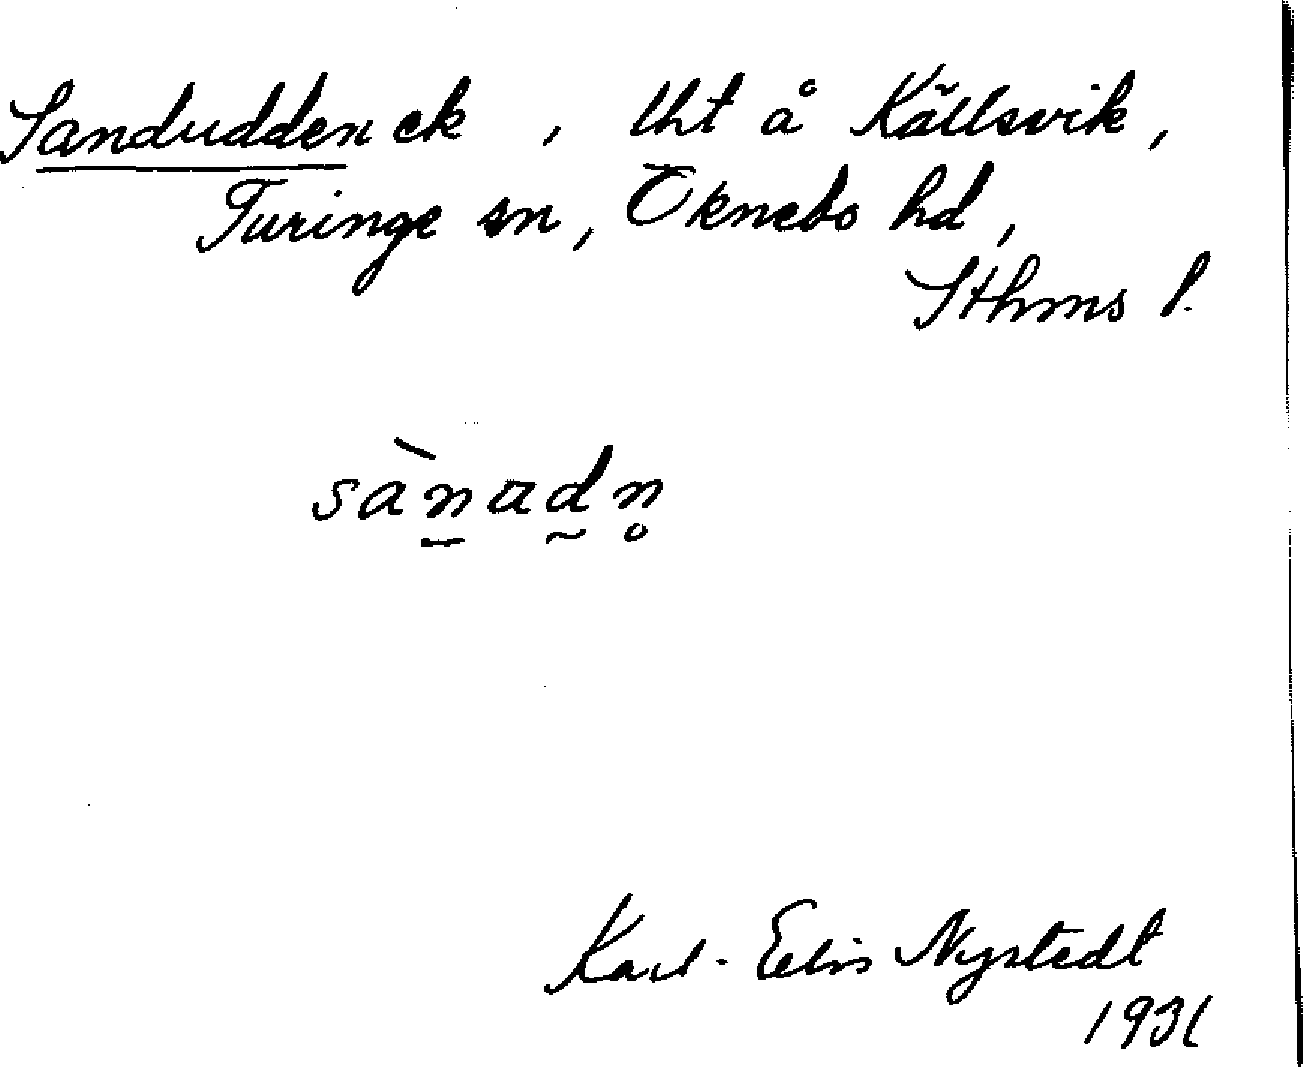 Sandudden ek , lht å Källsvik,
Turinge sn, Öknebo hd,
Sthms l.
sànadn̥
Karl-Elis Nystedt
1931